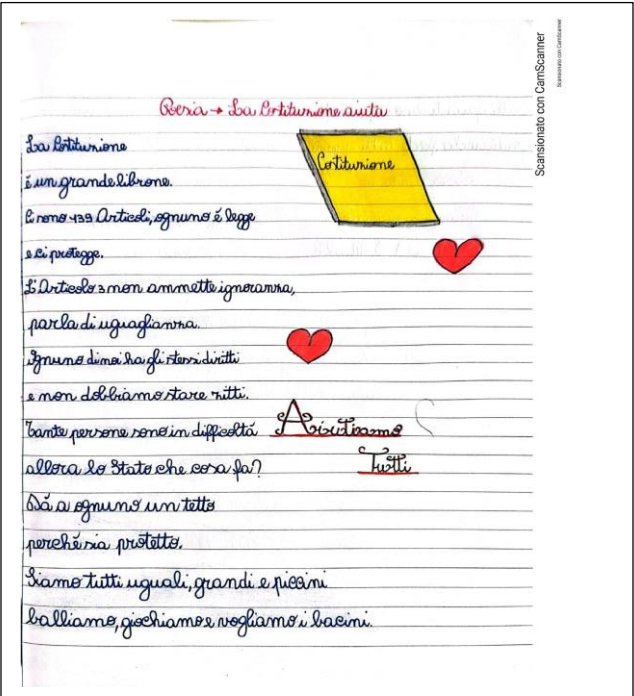 Poesia → La Costituzione aiuta
La Costituzione
Costituzione
è un grande librone.
Ci sono 139 Articoli, ognuno é legge
e ci protegge.
L'Articolo 3 non ammette ignoranza,
parla di uguaglianza.
Ognuno di noi ha gli stessi diritti
e non dobbiamo stare zitti.
Tante persone sono in difficoltá
Aiutiamo
allora lo Stato che cosa fa?
Tutti
Dá a ognuno un tetto
perché sia protetto.
Siamo tutti uguali, grandi e piccini
balliamo, giochiamo e vogliamo i bacini.
Scansionato con CamScanner
Scansionato con CamScanner